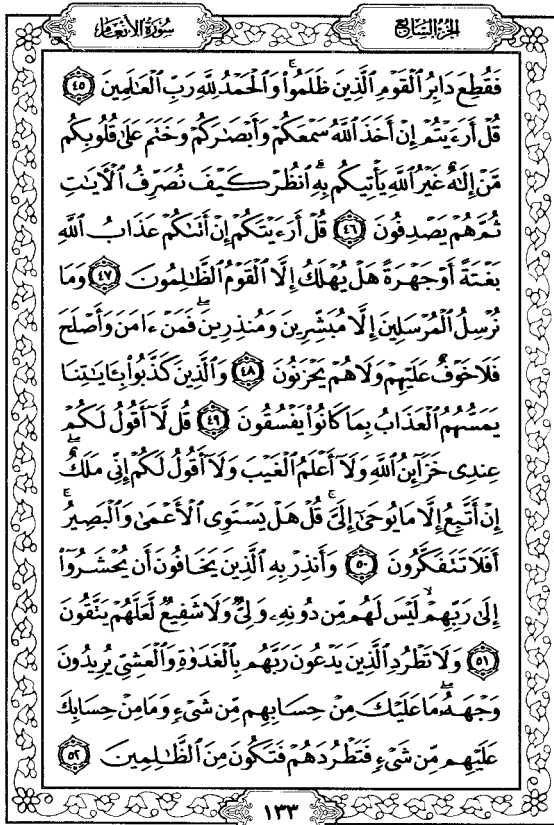 سُورَةُ الأَنْعَامِ
الجُزْءُ السَّابِعُ
فَقُطِعَ دَابِرُ ٱلْقَوْمِ ٱلَّذِينَ ظَلَمُوا۟ۚ وَٱلْحَمْدُ لِلَّهِ رَبِّ ٱلْعَـٰلَمِينَ ٤٥
قُلْ أَرَءَيْتُمْ إِنْ أَخَذَ ٱللَّهُ سَمْعَكُمْ وَأَبْصَـٰرَكُمْ وَخَتَمَ عَلَىٰ قُلُوبِكُم
مَّنْ إِلَـٰهٌ غَيْرُ ٱللَّهِ يَأْتِيكُم بِهِۗ ٱنظُرْ كَيْفَ نُصَرِّفُ ٱلْـَٔايَـٰتِ
ثُمَّ هُمْ يَصْدِفُونَ ٤٦ قُلْ أَرَءَيْتَكُمْ إِنْ أَتَىٰكُمْ عَذَابُ ٱللَّهِ
بَغْتَةً أَوْ جَهْرَةً هَلْ يُهْلَكُ إِلَّا ٱلْقَوْمُ ٱلظَّـٰلِمُونَ ٤٧ وَمَا
نُرْسِلُ ٱلْمُرْسَلِينَ إِلَّا مُبَشِّرِينَ وَمُنذِرِينَۖ فَمَنْ ءَامَنَ وَأَصْلَحَ
فَلَا خَوْفٌ عَلَيْهِمْ وَلَا هُمْ يَحْزَنُونَ ٤٨ وَٱلَّذِينَ كَذَّبُوا۟ بِـَٔايَـٰتِنَا
يَمَسُّهُمُ ٱلْعَذَابُ بِمَا كَانُوا۟ يَفْسُقُونَ ٤٩ قُل لَّآ أَقُولُ لَكُمْ
عِندِى خَزَآئِنُ ٱللَّهِ وَلَآ أَعْلَمُ ٱلْغَيْبَ وَلَآ أَقُولُ لَكُمْ إِنِّى مَلَكٌۖ
إِنْ أَتَّبِعُ إِلَّا مَا يُوحَىٰٓ إِلَىَّۚ قُلْ هَلْ يَسْتَوِى ٱلْأَعْمَىٰ وَٱلْبَصِيرُۚ
أَفَلَا تَتَفَكَّرُونَ ٥٠ وَأَنذِرْ بِهِ ٱلَّذِينَ يَخَافُونَ أَن يُحْشَرُوٓا۟
إِلَىٰ رَبِّهِمْۙ لَيْسَ لَهُم مِّن دُونِهِۦ وَلِىٌّ وَلَا شَفِيعٌ لَّعَلَّهُمْ يَتَّقُونَ
٥١ وَلَا تَطْرُدِ ٱلَّذِينَ يَدْعُونَ رَبَّهُم بِٱلْغَدَوٰةِ وَٱلْعَشِىِّ يُرِيدُونَ
وَجْهَهُۥۖ مَا عَلَيْكَ مِنْ حِسَابِهِم مِّن شَىْءٍ وَمَا مِنْ حِسَابِكَ
عَلَيْهِم مِّن شَىْءٍ فَتَطْرُدَهُمْ فَتَكُونَ مِنَ ٱلظَّـٰلِمِينَ ٥٢
١٣٣